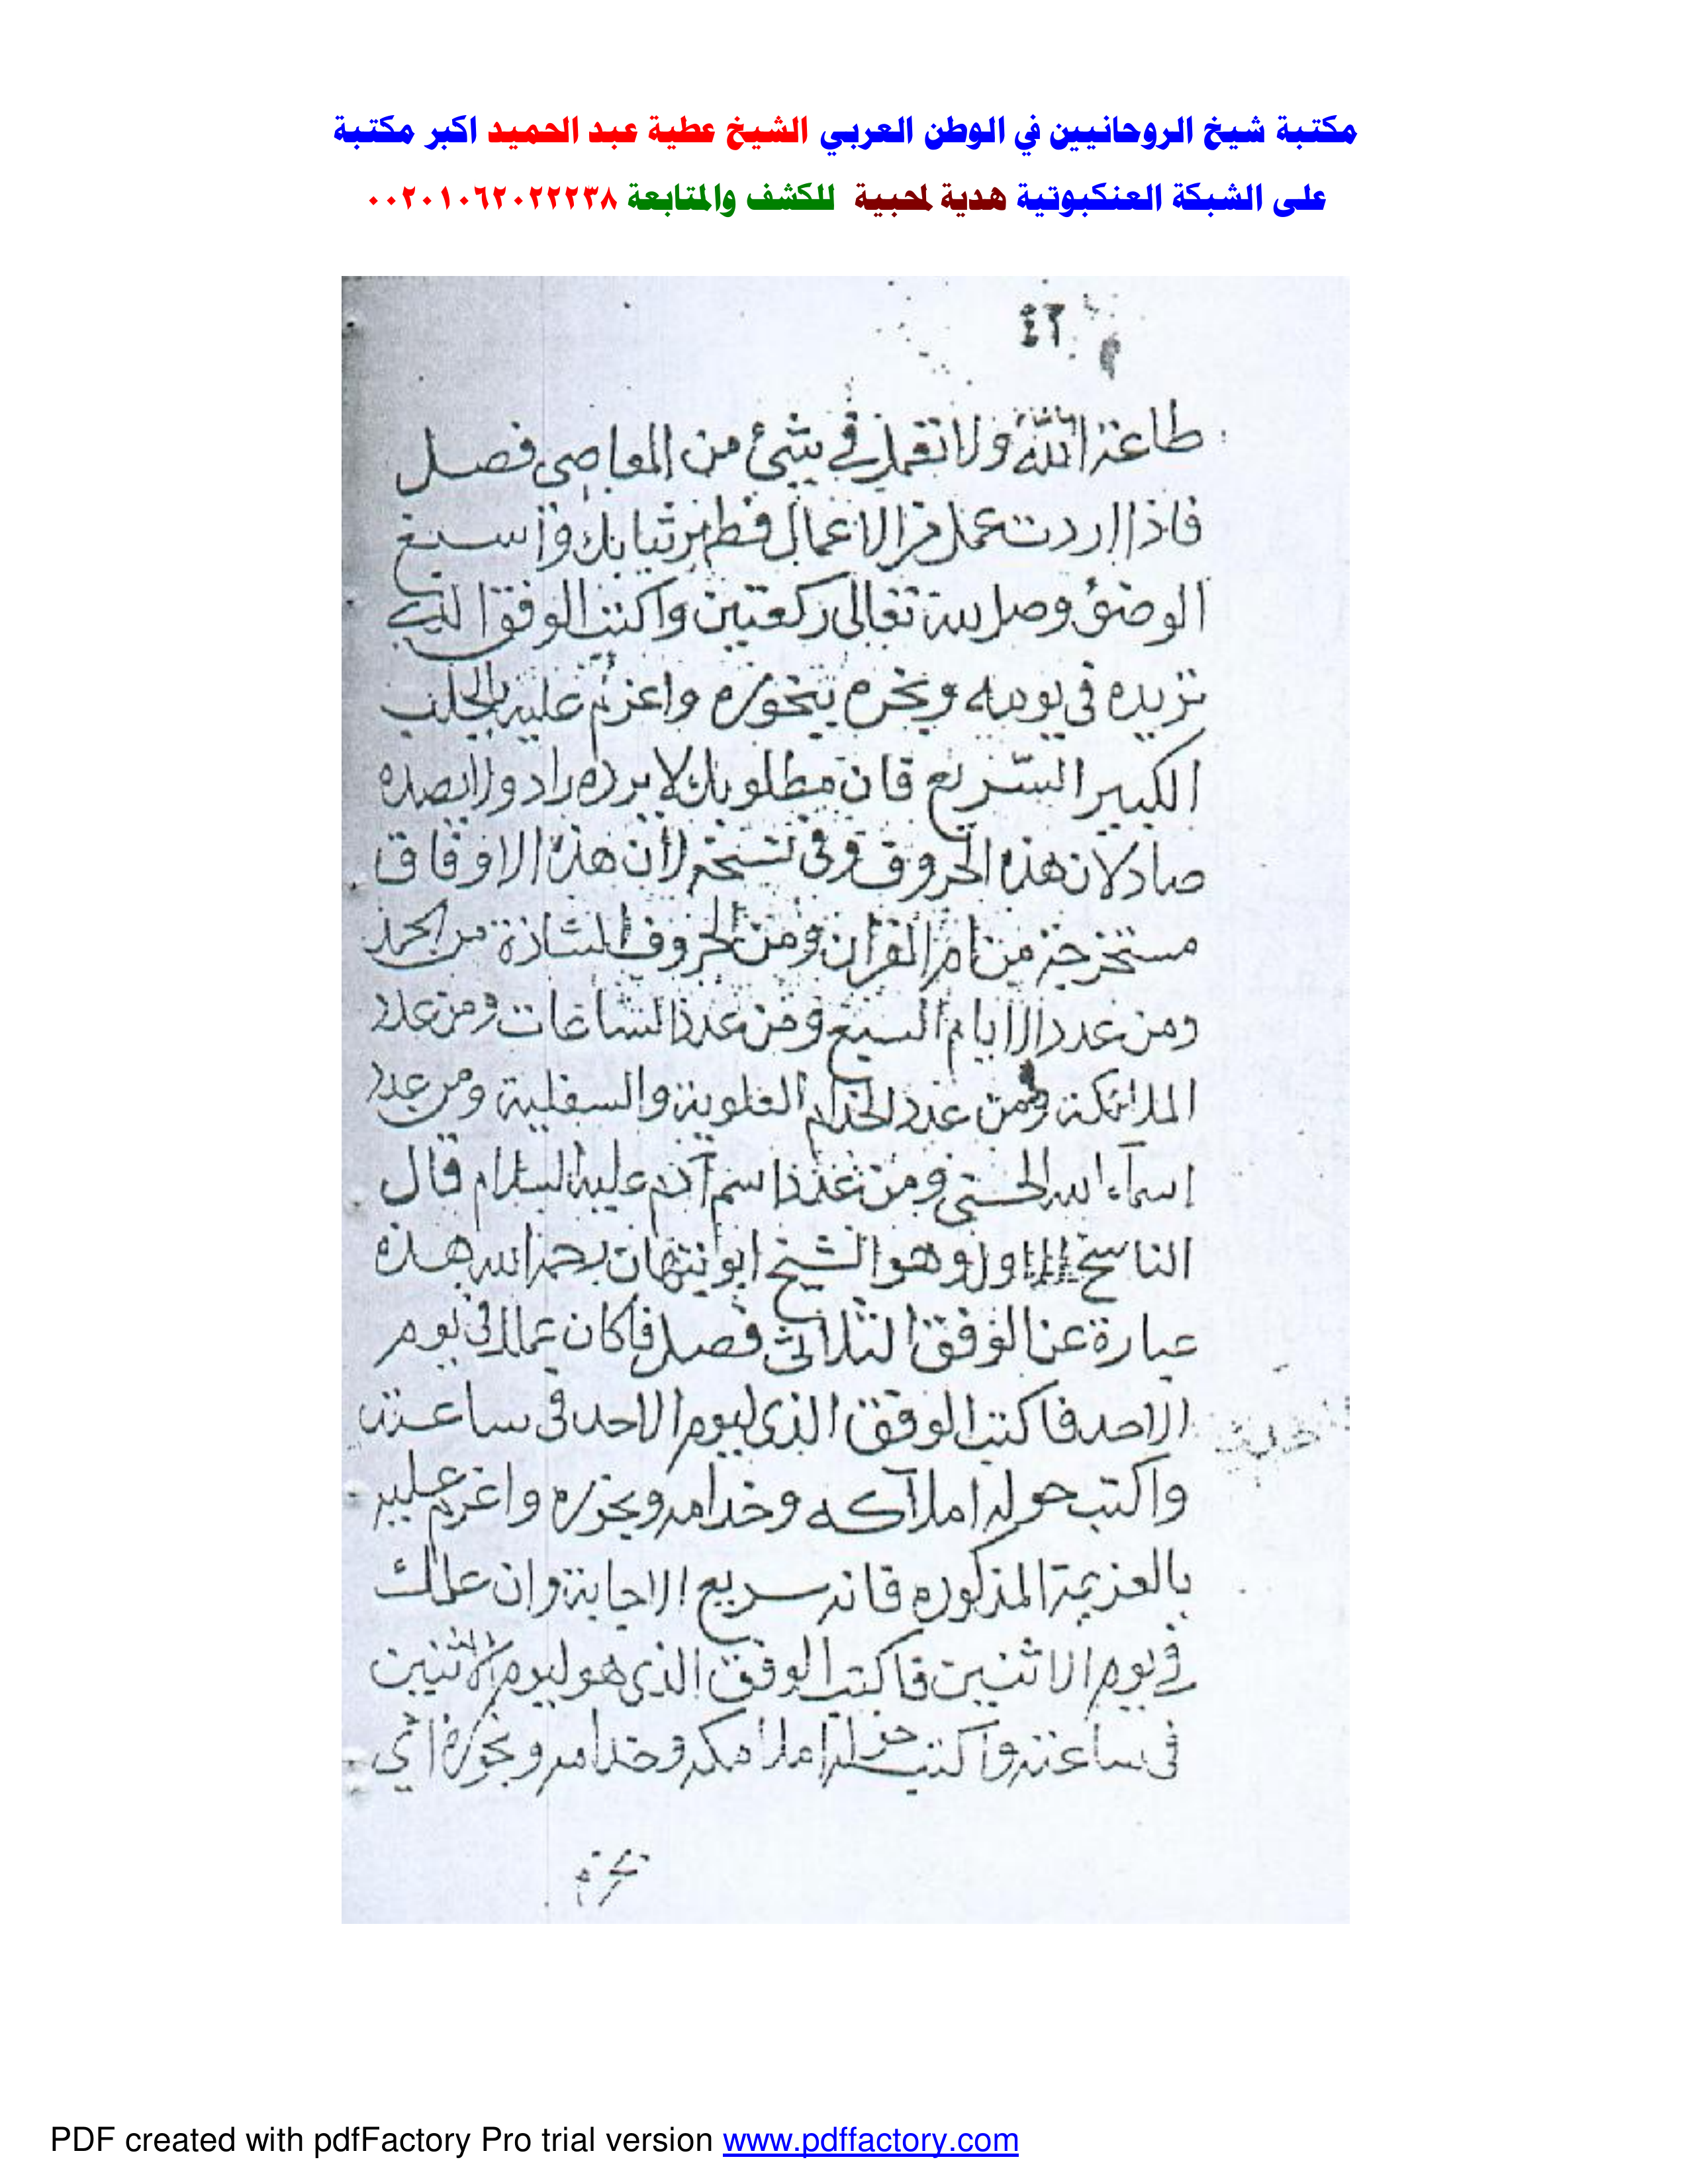 مكتبة شيخ الروحانيين في الوطن العربي الشيخ عطية عبد الحميد اكبر مكتبة
على الشبكة العنكبوتية هدية لمحبية للكشف والمتابعة ٠٠٢٠١٠٦٢٠٢٢٢٣٨
٤٦
طاعة الله ولا تعمل في شئ من المعاصى فصل
فاذا اردت عمل من الاعمال فطهر ثيابك واسبغ
الوضؤ وصل لله تعالى ركعتين واكتب الوفق الذي
تريده في يومه وبخره ببخوره واعزم عليه بالجلب
الكبير السريع فان مطلوبك لا يرده راد ولا يصده
صاد لان هذه الحروف وفي نسخه لأن هذه الاوفاق
مستخرجة من ام القرآن ومن الحروف الشاذة من الحمد
ومن عدد الايام السبع ومن عدد الساعات ومن عدد
الملائكة ومن عدد الخدام العلوية والسفلية ومن عدد
اسمآء الله الحسنى ومن عدد اسم آدم عليه السلام قال
الناسخ الاول وهو الشيخ ابو رحمه الله هذه
عبارة عن الوفق الثلاثى فصل فاكان عملك في يوم
الاحد فاكتب الوفق الذي ليوم الاحد في ساعته
واكتب حوله املاكه وخدامه وبخوره واعزم عليه
بالعزيمة المذكوره فانه سريع الاجابة وان عملك
في يوم الاثنين فاكتب الوفق الذي هو ليوم الاثنين
في ساعته واكتب حوله املاكه وخدامه وبخوره اي
بخره
PDF created with pdfFactory Pro trial version www.pdffactory.com